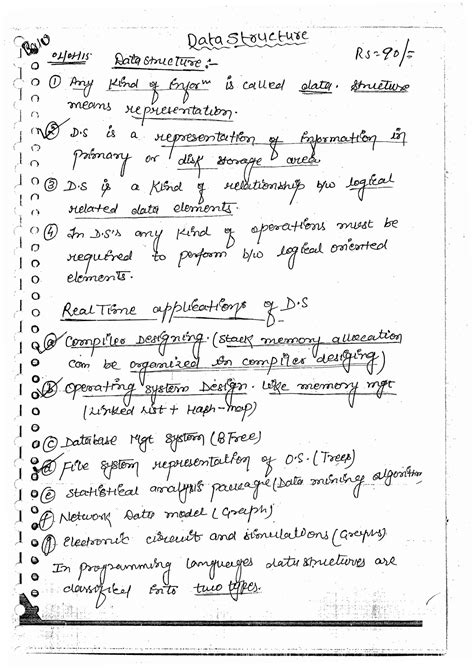 Data Structure
RS=90/=
01/07/15 Data structure:-
① Any kind of inforᵐ is called data. structure
means representation.
② D.S is a representation of information in
primary or disk storage area.
③ D.S is a kind of relationship b/w logical
related data elements.
④ In D.S's any kind of operations must be
required to perform b/w logical oriented
elements.
Real Time applications of D.S
ⓐ Compiler Designing. (stack memory allocation
can be organized in compiler designing)
ⓑ Operating system Design. like memory mgt
(Linked list + Hash-map)
ⓒ Database Mgt System (B Tree)
ⓓ File system representation of O.S. (Trees)
ⓔ statistical analysis package (Data mining algorithm
ⓕ Network Data model (Graph)
ⓖ Electronic circuit and simulations (Graphs)
In programming languages data structures are
classified into two types.